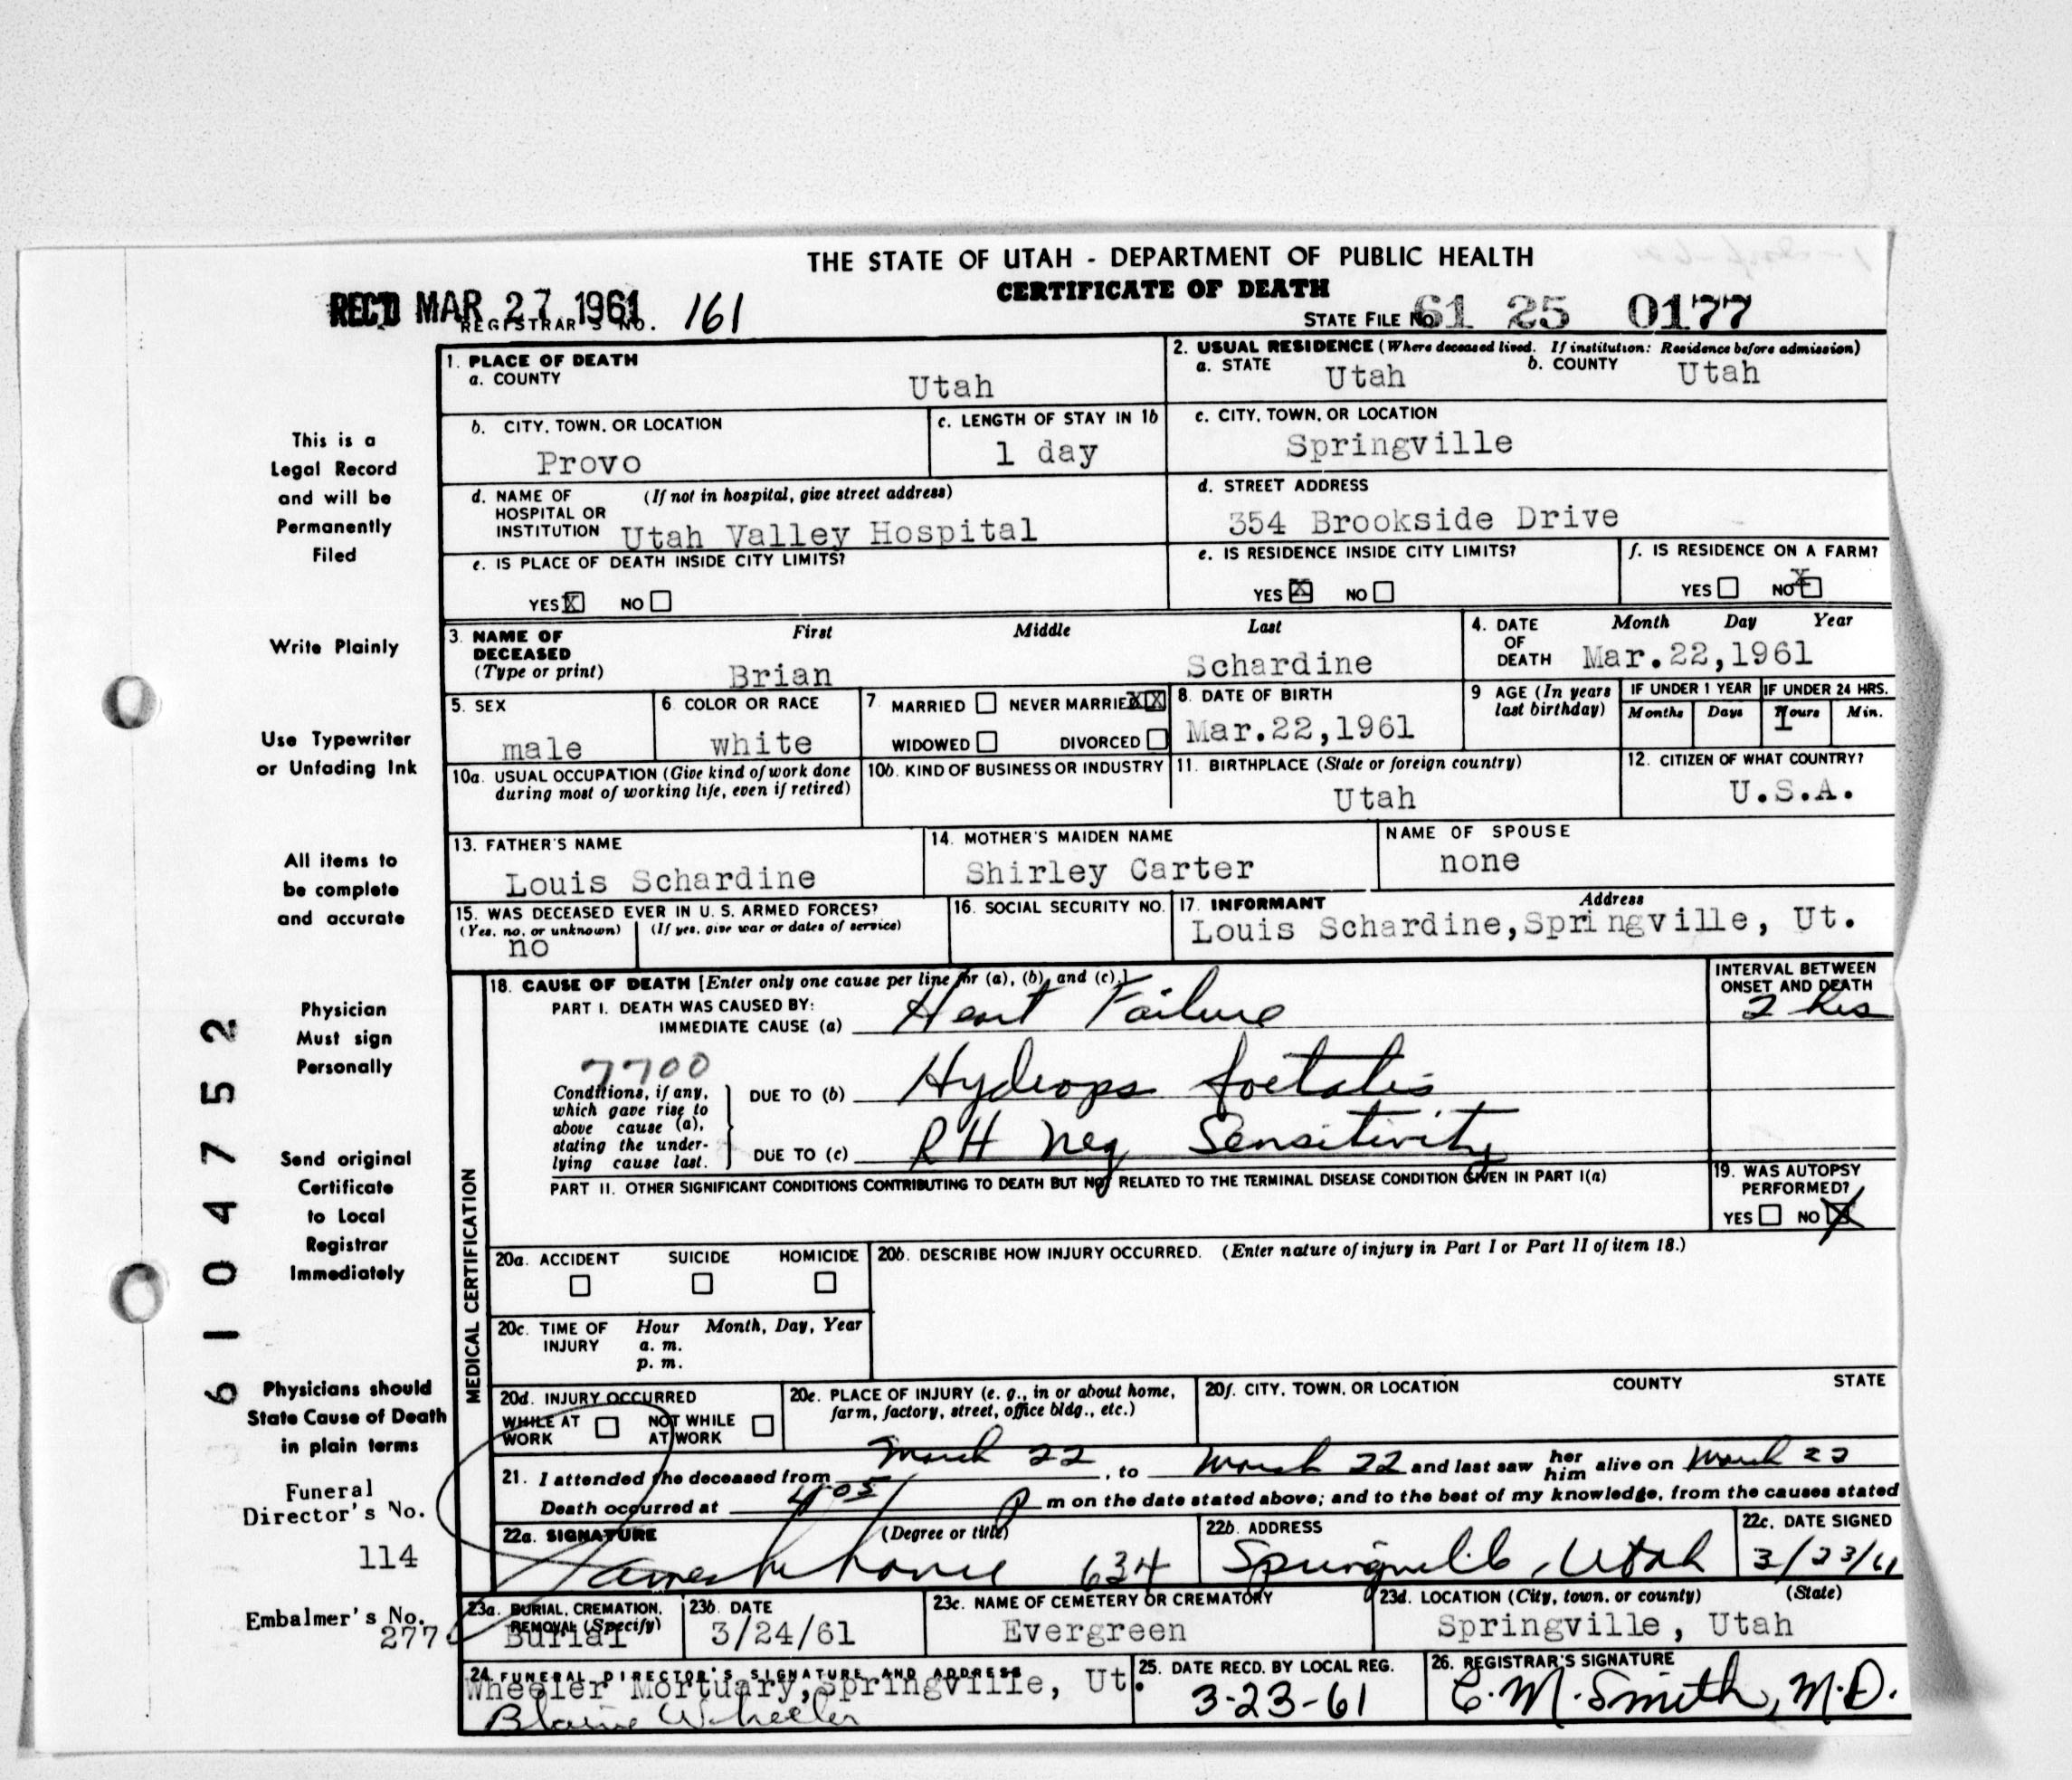 THE STATE OF UTAH - DEPARTMENT OF PUBLIC HEALTH
CERTIFICATE OF DEATH
REC'D MAR 27 1961
REGISTRAR'S NO. 161
STATE FILE NO. 61 25 0177
1. PLACE OF DEATH
a. COUNTY Utah
2. USUAL RESIDENCE (Where deceased lived. If institution: Residence before admission)
a. STATE Utah b. COUNTY Utah
b. CITY, TOWN, OR LOCATION
Provo
c. LENGTH OF STAY IN 1b
1 day
c. CITY, TOWN, OR LOCATION
Springville
d. NAME OF (If not in hospital, give street address)
HOSPITAL OR
INSTITUTION Utah Valley Hospital
d. STREET ADDRESS
354 Brookside Drive
e. IS PLACE OF DEATH INSIDE CITY LIMITS?
YES X NO
e. IS RESIDENCE INSIDE CITY LIMITS?
YES X NO
f. IS RESIDENCE ON A FARM?
YES NO X
3. NAME OF DECEASED (Type or print)
First Middle Last
Brian Schardine
4. DATE OF DEATH
Month Day Year
Mar.22,1961
5. SEX
male
6. COLOR OR RACE
white
7. MARRIED NEVER MARRIED XX
WIDOWED DIVORCED
8. DATE OF BIRTH
Mar.22,1961
9 AGE (In years last birthday)
IF UNDER 1 YEAR IF UNDER 24 HRS.
Months Days Hours Min.
1
10a. USUAL OCCUPATION (Give kind of work done during most of working life, even if retired)
10b. KIND OF BUSINESS OR INDUSTRY
11. BIRTHPLACE (State or foreign country)
Utah
12. CITIZEN OF WHAT COUNTRY?
U.S.A.
13. FATHER'S NAME
Louis Schardine
14. MOTHER'S MAIDEN NAME
Shirley Carter
NAME OF SPOUSE
none
15. WAS DECEASED EVER IN U. S. ARMED FORCES?
(Yes, no, or unknown) (If yes, give war or dates of service)
no
16. SOCIAL SECURITY NO.
17. INFORMANT Address
Louis Schardine,Springville, Ut.
MEDICAL CERTIFICATION
18. CAUSE OF DEATH [Enter only one cause per line for (a), (b), and (c).]
PART I. DEATH WAS CAUSED BY:
IMMEDIATE CAUSE (a) Heart Failure
INTERVAL BETWEEN ONSET AND DEATH
2 hrs
7700
Conditions, if any, which gave rise to above cause (a), stating the underlying cause last.
DUE TO (b) Hydrops foetalis
DUE TO (c) RH neg Sensitivity
PART II. OTHER SIGNIFICANT CONDITIONS CONTRIBUTING TO DEATH BUT NOT RELATED TO THE TERMINAL DISEASE CONDITION GIVEN IN PART I(a)
19. WAS AUTOPSY PERFORMED?
YES NO X
20a. ACCIDENT SUICIDE HOMICIDE
20b. DESCRIBE HOW INJURY OCCURRED. (Enter nature of injury in Part I or Part II of item 18.)
20c. TIME OF INJURY
Hour Month, Day, Year
a. m.
p. m.
20d. INJURY OCCURRED
WHILE AT WORK NOT WHILE AT WORK
20e. PLACE OF INJURY (e. g., in or about home, farm, factory, street, office bldg., etc.)
20f. CITY, TOWN, OR LOCATION COUNTY STATE
21. I attended the deceased from March 22, to March 22 and last saw her him alive on March 22
Death occurred at 4:05 P m on the date stated above; and to the best of my knowledge, from the causes stated
22a. SIGNATURE (Degree or title)
634
22b. ADDRESS
Springville, Utah
22c. DATE SIGNED
3/23/61
23a. BURIAL, CREMATION, REMOVAL (Specify)
Burial
23b. DATE
3/24/61
23c. NAME OF CEMETERY OR CREMATORY
Evergreen
23d. LOCATION (City, town, or county) (State)
Springville, Utah
24. FUNERAL DIRECTOR'S SIGNATURE AND ADDRESS
Wheeler Mortuary,Springville, Ut.
Blaine Wheeler
25. DATE RECD. BY LOCAL REG.
3-23-61
26. REGISTRAR'S SIGNATURE
C. M. Smith, M.D.
This is a
Legal Record
and will be
Permanently
Filed
Write Plainly
Use Typewriter
or Unfading Ink
All items to
be complete
and accurate
Physician
Must sign
Personally
Send original
Certificate
to Local
Registrar
Immediately
Physicians should
State Cause of Death
in plain terms
Funeral
Director's No.
114
Embalmer's No.
277
6104752